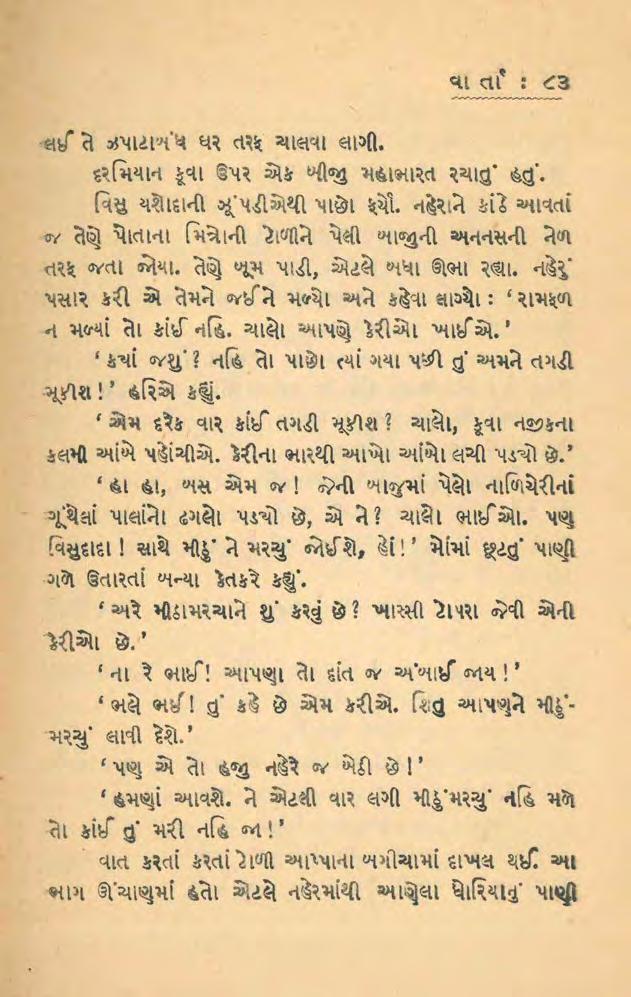 વાર્તા : ૮૩
લઈ તે ઝપાટાબંધ ઘર તરફ ચાલવા લાગી.
દરમિયાન કૂવા ઉપર એક બીજી મહાભારત રચાતું હતું.
વિસુ યશોદાની ઝૂંપડીએથી પાછો ફર્યો. નહેરાને કાંઠે આવતાં
જ તેણે પોતાના મિત્રોની ટોળીને પેલી બાજુની અનનસની નેળ
તરફ જતા જોયા. તેણે બૂમ પાડી, એટલે બધા ઊભા રહ્યા. નહેરું
પસાર કરી એ તેમને જઈને મળ્યો અને કહેવા લાગ્યો : ‘રામફળ
ન મળ્યાં તો કાંઈ નહિ. ચાલો આપણે કેરીઓ ખાઈએ.’
‘ક્યાં જશું? નહિ તો પાછો ત્યાં ગયા પછી તું અમને તગડી
મૂકીશ!’ હરિએ કહ્યું.
‘એમ દરેક વાર કાંઈ તગડી મૂકીશ? ચાલો, કૂવા નજીકના
કલમી આંબે પહોંચીએ. કેરીના ભારથી આખો આંબો લચી પડ્યો છે.’
‘હા હા, બસ એમ જ! જેની બાજુમાં પેલો નાળિયેરીનાં
ગૂંથેલાં પાલાંનો ઢગલો પડ્યો છે, એ ને? ચાલો ભાઈઓ. પણ
વિસુદાદા! સાથે મીઠું ને મરચું જોઈશે, હોં!’ મોંમાં છૂટતું પાણી
ગળે ઉતારતાં બન્યા કેતકરે કહ્યું.
‘અરે મીઠામરચાને શું કરવું છે? ખાસ્સી ટોપરા જેવી એની
કેરીઓ છે.’
‘ના રે ભાઈ! આપણા તો દાંત જ અંબાઈ જાય!’
‘ભલે ભઈ! તું કહે છે એમ કરીએ. શિતુ આપણને મીઠું-
મરચું લાવી દેશે.’
‘પણ એ તો હજી નહેરે જ બેઠી છે!’
‘હમણાં આવશે. ને એટલી વાર લગી મીઠુંમરચું નહિ મળે
તો કાંઈ તું મરી નહિ જા!’
વાત કરતાં કરતાં ટોળી આપ્પાના બગીચામાં દાખલ થઈ. આ
ભાગ ઊંચાણમાં હતો એટલે નહેરમાંથી આણેલા ધોરિયાનું પાણી